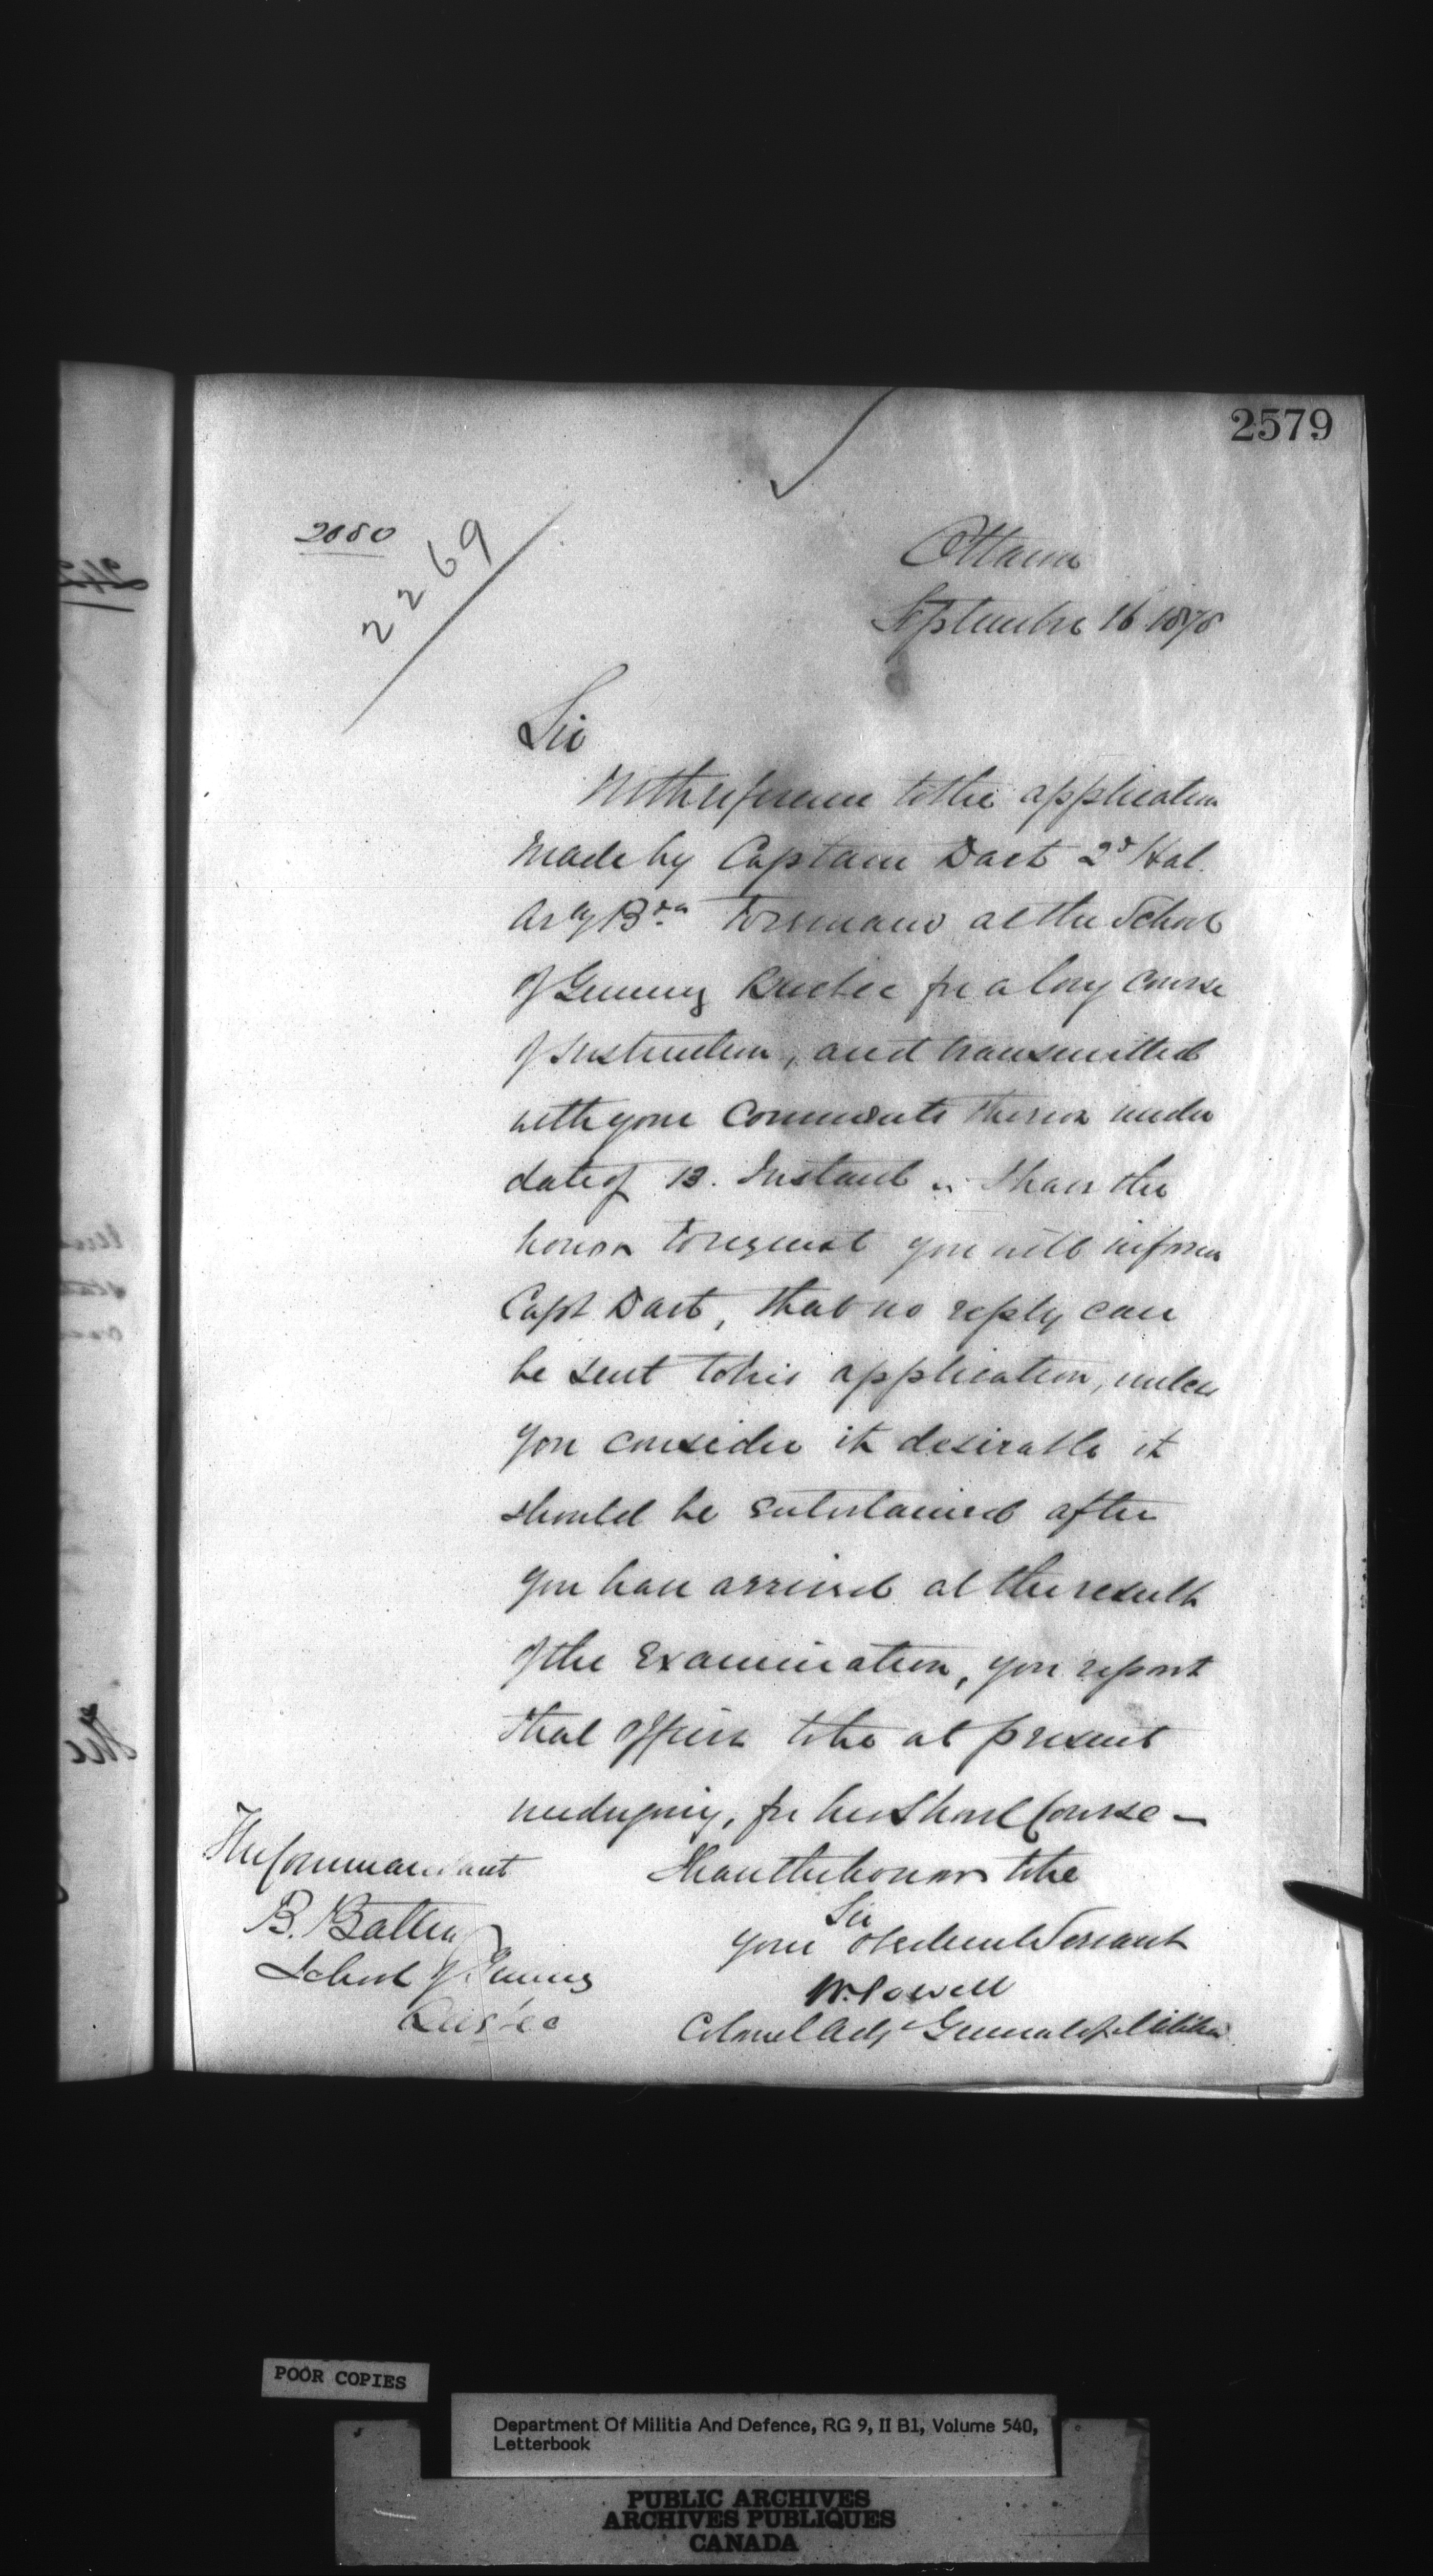 2579
2269
Ottawa
September 16 1878
Sir
With reference to the application
made by Captain Dart 2d Hal.
Ary Bde to remain at the School
of Gunnery Quebec for a long course
of Instruction, and transmitted
with your Comments thereon under
date of 13. Instant I have the
honor to request you will inform
Capt Dart, that no reply can
be sent to his application, unless
you consider it desirable it
should be entertained after
you have arrived at the result
of the Examination, you report
that officer to be at present
undergoing, for his Short Course —
I have the honor to be
Sir
your obedient Servant
W. Powell
Colonel Adjt General of Militia
The Commandant
B. Battery
School of Gunnery
Quebec
POOR COPIES
Department Of Militia And Defence, RG 9, II B1, Volume 540,
Letterbook
PUBLIC ARCHIVES
ARCHIVES PUBLIQUES
CANADA